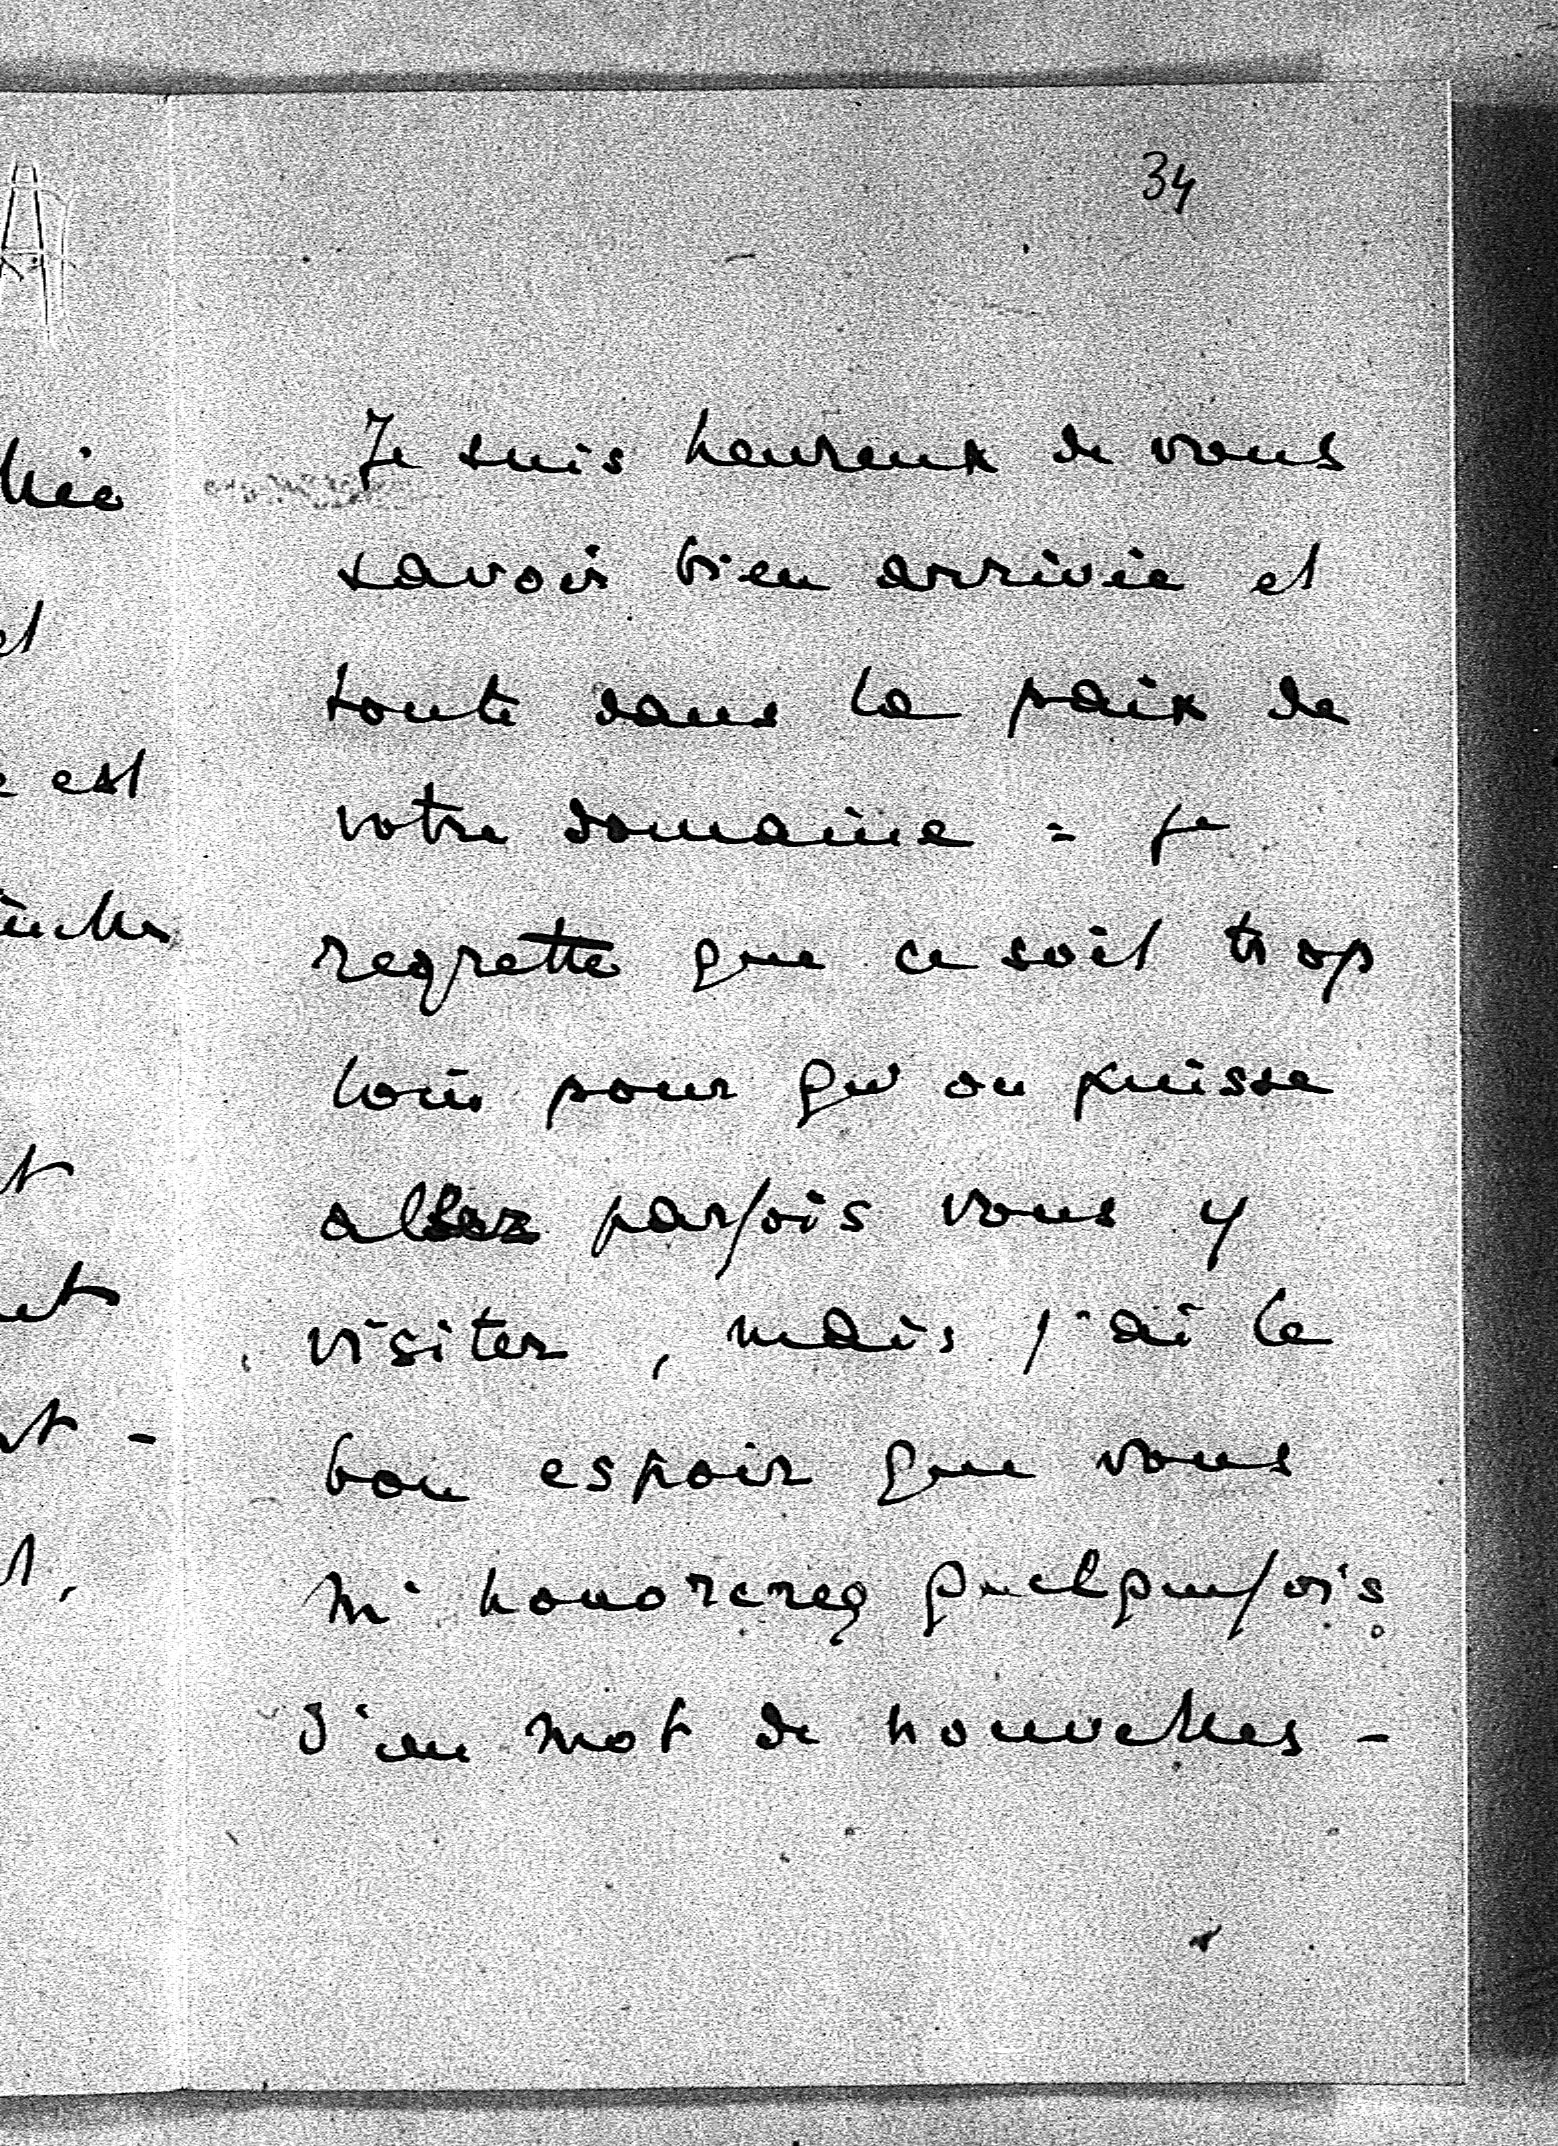 34
Je suis heureux de vous
savoir bien arrivée et
toute dans la paix de
votre domaine = je
regrette que ce soit trop
loin pour qu'on puisse
aller parfois vous y
visiter, mais j'ai le
bon espoir que vous
m'honorerez quelquefois
d'un mot de nouvelles -
et
est